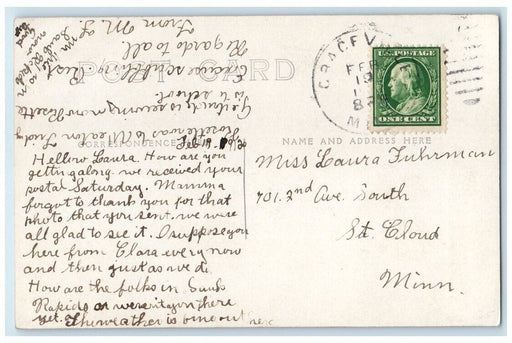 POST CARD
CORRESPONDENCE
NAME AND ADDRESS HERE
GRACEV
FEB
19
8
M
U.S. POSTAGE
ONE CENT
Feb. 19,
Hellow Laura. How are you
getting along. we received your
postal Saturday. Mamma
forgot to thank you for that
photo that you sent. we were
all glad to see it. I suppose you
here from Clara every now
and then just as we do.
How are the folks in Sauk
Rapids or weren't you there
yet.
The weather is fine out here
to Wheaton
Gertrude is
to school.
Excuse scribbling
Regards to all
From M. F.
Write soon
Miss Laura Fuhrman
701. 2nd Ave. South
St. Cloud
Minn.